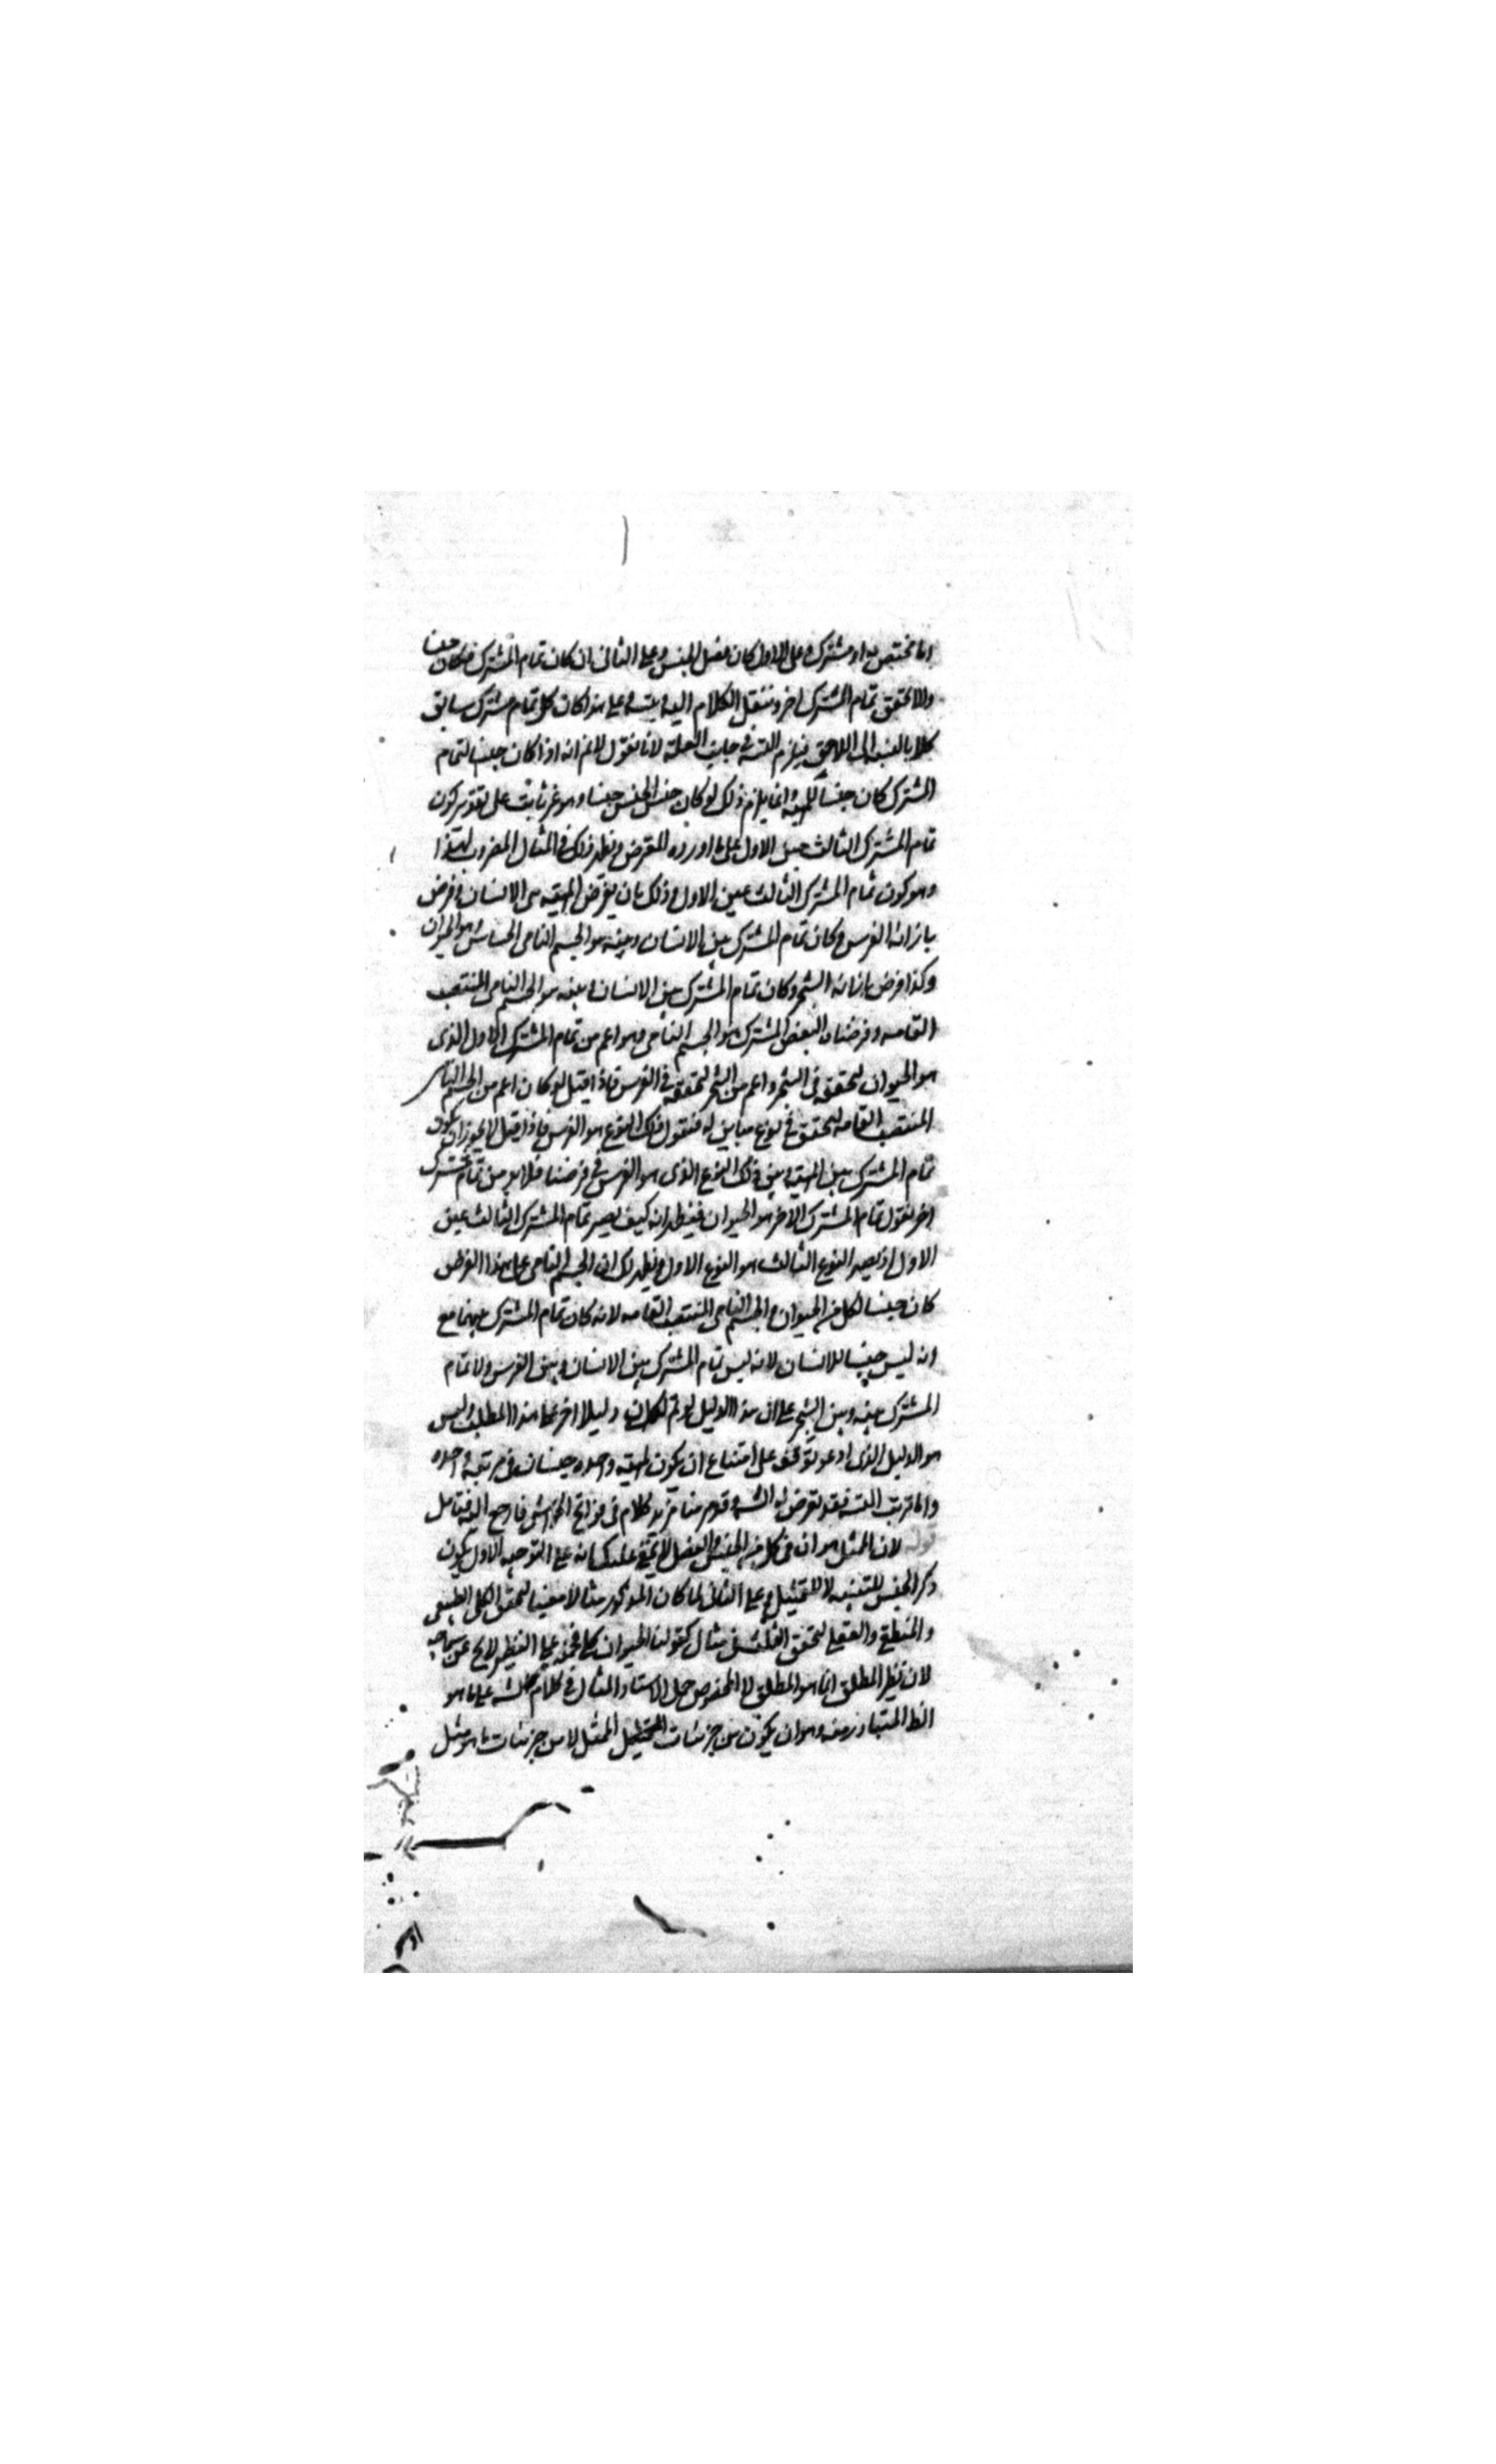 اما مختص به او مشترك وعلى الاول كان فصل الجنس وعلى الثانى ان كان تمام المشترك فكان جنسا
والا تحقق تمام المشترك اخر وننقل الكلام اليه وعلى هذا كان كل تمام مشترك سابق
كلا بالنسبة الى اللاحق فيلزم التسه فى جانب العلة لانا نقول لانم انه اذا كان جنسا لتمام
المشترك كان جنسا للمهية وانما يلزم ذلك لو كان جنس الجنس جنسا وهو غير ثابت على تقدير كون
تمام المشترك الثالث عين الاول على ما اورده المعترض ويظهر ذلك فى المثال المضروب لهذا
وهو كون تمام المشترك الثالث عين الاول وذلك بان يفرض المهية هى الانسان وفرض
بازائه الفرس وكان تمام المشترك بين الانسان وبينه هو الجسم النامى الحساس وهو الحيوان
وكذا فرض بازائه الشجر وكان تمام المشترك بين الانسان وبينه هو الجسم النامى المنتصب
القامه وفرضنا ان البعض المشترك هو الجسم النامى وهو اعم من تمام المشترك الاول الذى
هو الحيوان لتحققه فى الشجر واعم من الشجر لتحققه فى الفرس فاذا قيل لو كان اعم من الجسم النامى
المنتصب القامه لتحقق فى نوع مباين له فنقول ذلك النوع هو الفرس فاذا قيل لا يجوز ان يكون
تمام المشترك بين المهية وبين ذلك النوع الذى هو الفرس فى فرضنا فلا بد من تمام مشترك
اخر نقول تمام المشترك الاخر هو الحيوان فيظهر انه كيف يصير تمام المشترك الثالث عين
الاول اذ يصير النوع الثالث هو النوع الاول ويظهر لك ان الجسم النامى على هذا الفرض
كان جنسا لكل من الحيوان والجسم النامى المنتصب القامه لانه كان تمام المشترك بينهما مع
انه ليس جنسا للانسان لانه ليس تمام المشترك بين الانسان وبين الفرس ولا تمام
المشترك بينه وبين الشجر على ان هذا الدليل لو تم لكان دليلا اخر على هذا المطلب وليس
هو الدليل الذى ادعو توقفه على امتناع ان يكون لمهية واحده جنسان فى مرتبة واحده
واما ترتب التسه فقد تعرض له الشه وقد مر منا مزيد كلام فى فواتح الحواشى فارجع اليه فتامل
قوله لان الممثل هو ان فى كل من الجنس والفصل لا يخفى عليك انه على التوجيه الاول يكون
ذكر الجنس للتنبيه لا للتمثيل وعلى الثانى لما كان المذكور مثالا مغنيا لتحقق الكلى الطبيعى
والمنطقى والعقلى لتحقق الثلث فى مثال كقولنا الحيوان كلى فحمله على النظير لا يخ عن سماجه
لان نظير المطلق انما هو المطلق لا المخصوص حمل الاستاد المثال فى كلام الشه على ما هو
الظ المتبادر منه وهو ان يكون من جزئيات الممثل لا من جزئيات ما هو مثل